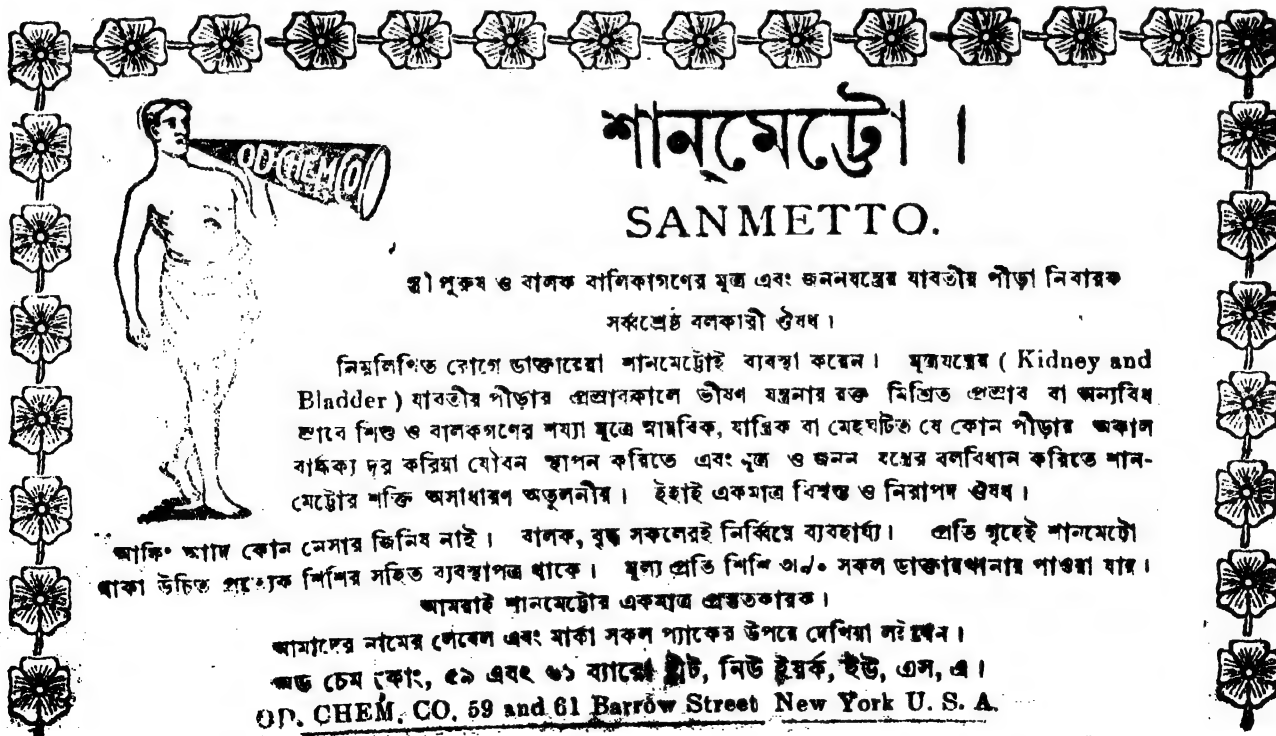 OD CHEM CO
শান্‌মেট্টো ।
SANMETTO.
স্ত্রী পুরুষ ও বালক বালিকাগণের মূত্র এবং জননযন্ত্রের যাবতীয় পীড়া নিবারক
সর্ব্বশ্রেষ্ঠ বলকারী ঔষধ ।
নিম্নলিখিত রোগে ডাক্তারেরা শানমেট্টোই ব্যবস্থা করেন । মূত্রযন্ত্রের ( Kidney and
Bladder ) যাবতীয় পীড়ার প্রেস্রাবকালে ভীষণ যন্ত্রনার রক্ত মিশ্রিত প্রেস্রাব বা অন্যবিধ
ভাবে শিশু ও বালকগণের শয্যা মূত্রে স্নায়বিক, যান্ত্রিক বা মেহঘটিত যে কোন পীড়ার অকাল
বার্দ্ধক্য দূর করিয়া যৌবন স্থাপন করিতে এবং মূত্র ও জনন যন্ত্রের বলবিধান করিতে শান-
মেট্টোর শক্তি অসাধারণ অতুলনীয় । ইহাই একমাত্র বিশ্বস্ত ও নিরাপদ ঔষধ ।
আফিং আদি কোন নেসার জিনিষ নাই । বালক, বৃদ্ধ সকলেরই নির্ব্বিঘ্নে ব্যবহার্য্য । প্রতি গৃহেই শানমেট্টো
থাকা উচিত প্রত্যেক শিশির সহিত ব্যবস্থাপত্র থাকে । মূল্য প্রতি শিশি ৩৷৵০ সকল ডাক্তারখানার পাওয়া যায় ।
আমরাই শানমেট্টোর একমাত্র প্রস্তুতকারক ।
আমাদের নামের লেবেল এবং মার্কা সকল প্যাকের উপরে দেখিয়া লইবেন ।
অড চেম কোং, ৫৯ এবং ৬১ ব্যারো ষ্ট্রীট, নিউ ইয়র্ক, ইউ, এস, এ ।
OD. CHEM. CO. 59 and 61 Barrow Street New York U. S. A.